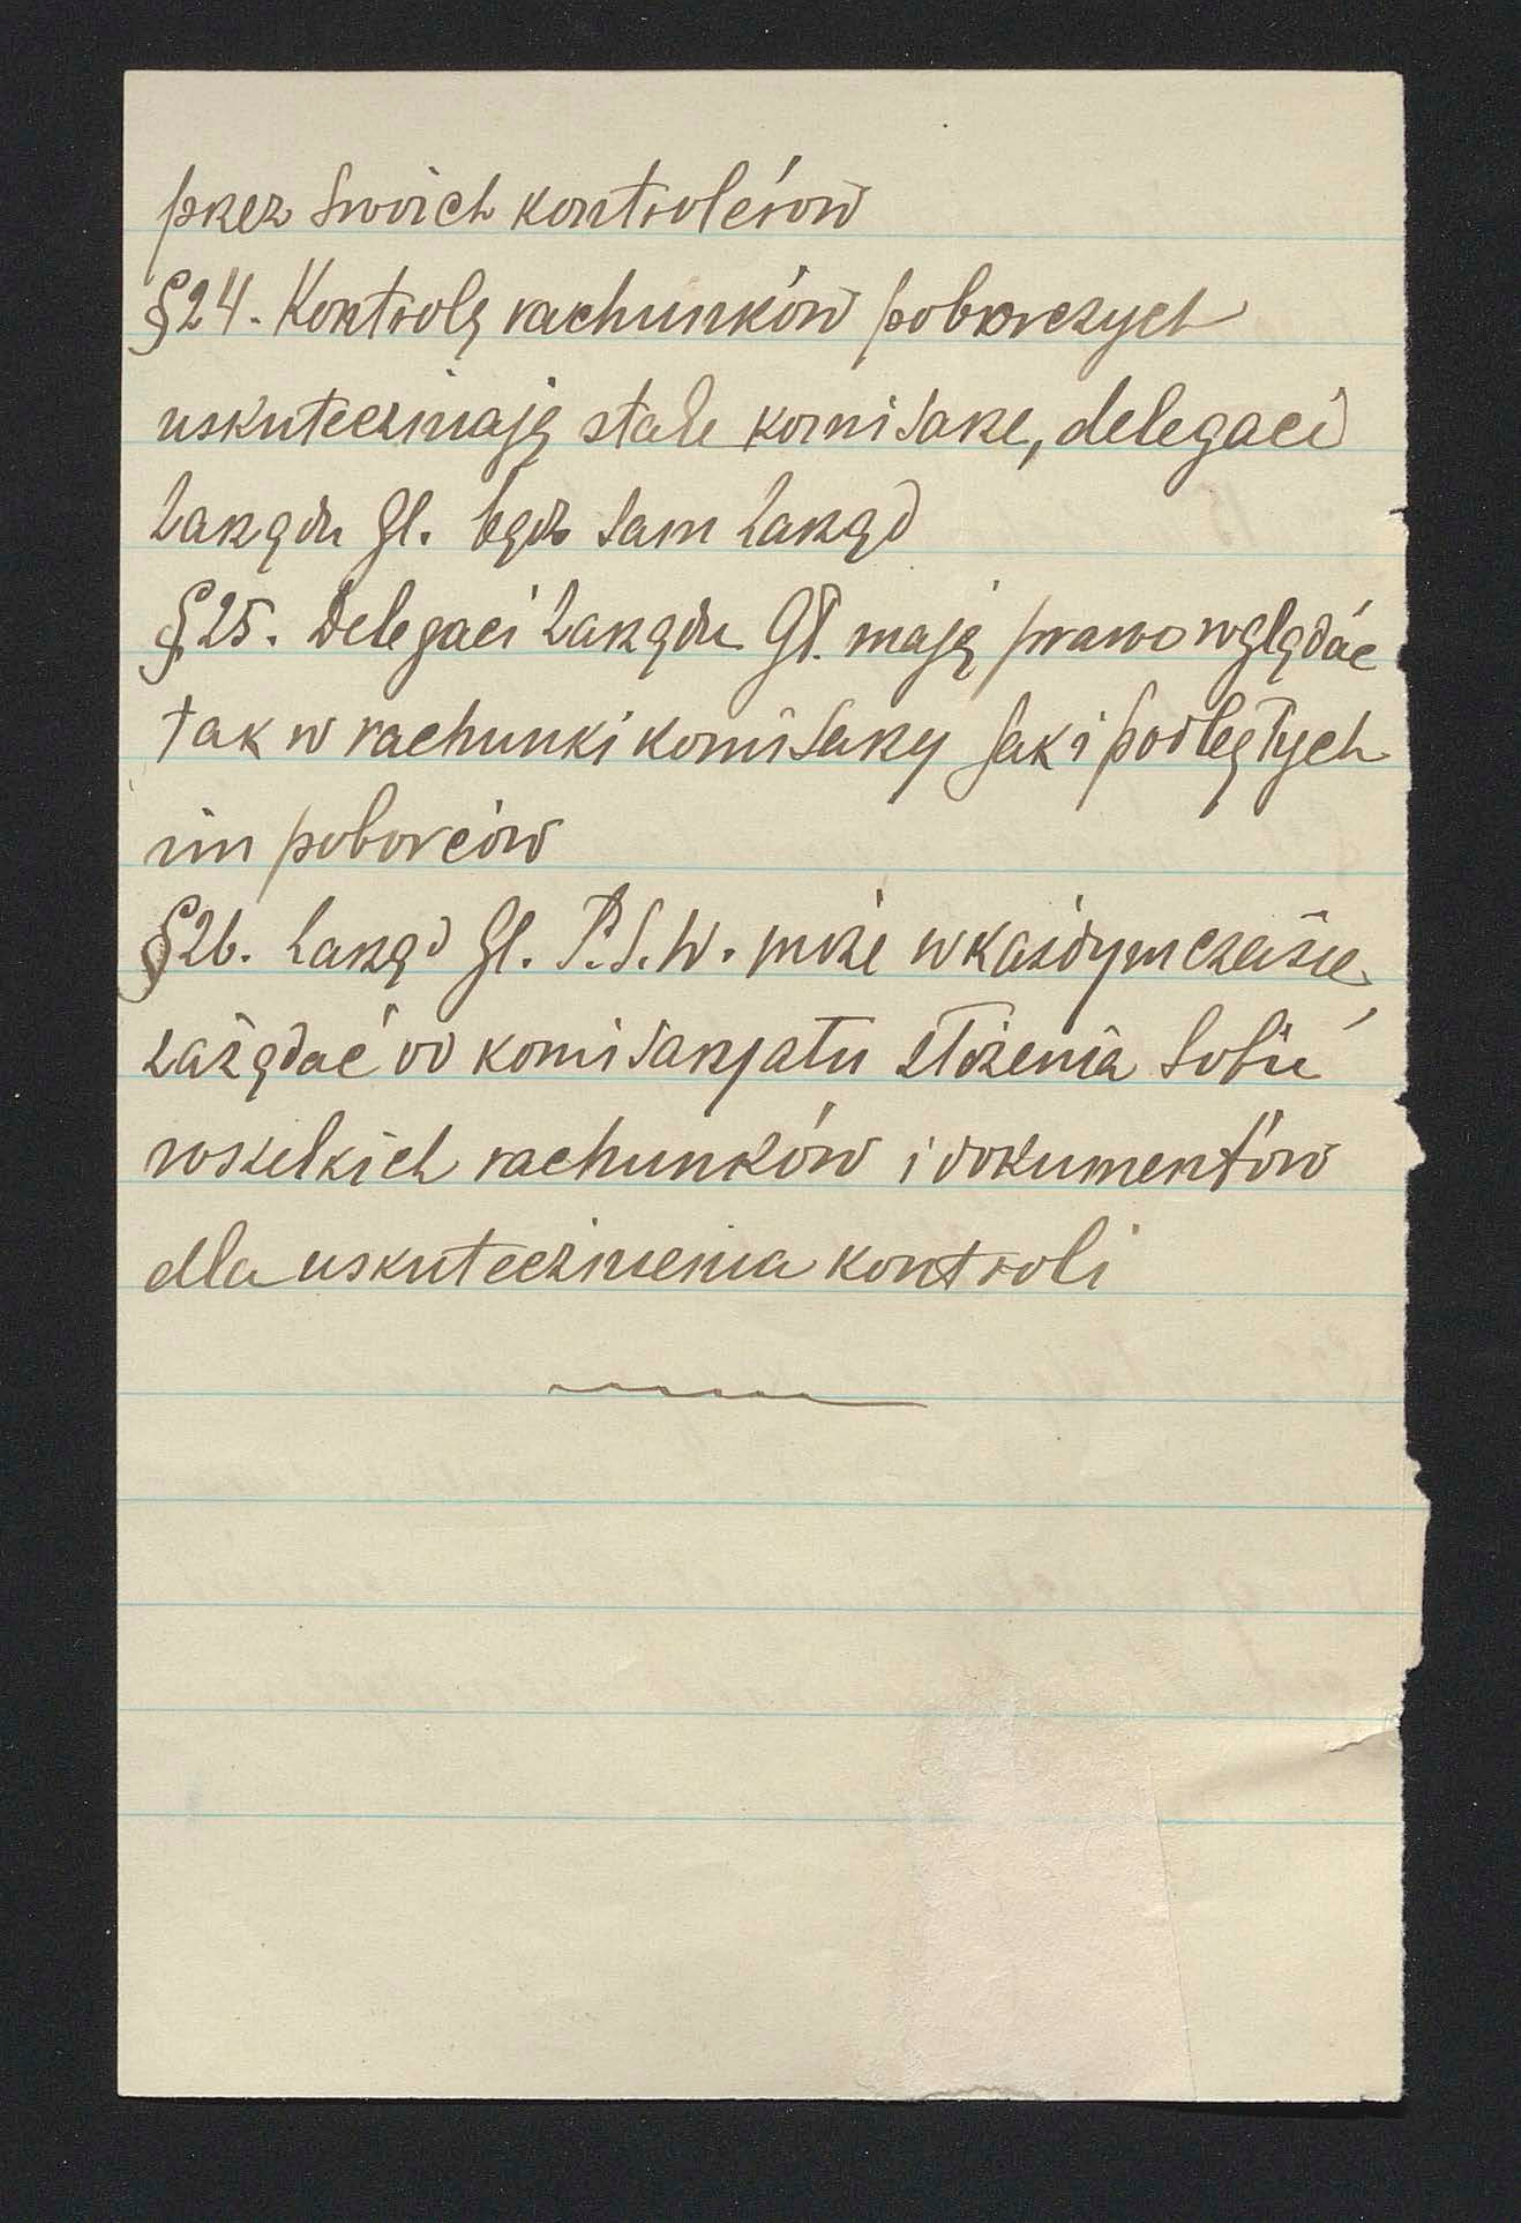 przez swoich kontrolerów
§ 24. Kontrolę rachunków poborczych
uskuteczniają stale komisarze, delegaci
Zarządu Gł. bądź sam Zarząd
§ 25. Delegaci Zarządu Gł. mają prawo wglądać
tak w rachunki komisarzy jak i podległych
im poborców
§ 26. Zarząd Gł. P.S.W. może w każdym czasie,
zażądać od komisarjatu złożenia sobie
wszelkich rachunków i dokumentów
dla uskutecznienia kontroli